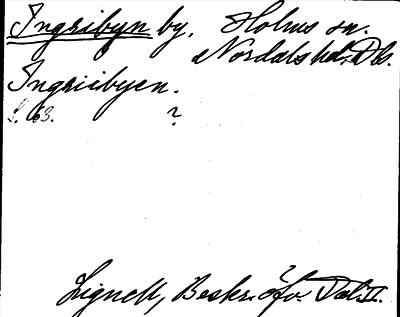 Ingribyn by. Holms sn.
Nordals hd, Dls.
Ingriibyen.
S. 53. ?
Lignell, Beskr. öfv. Dal. II.